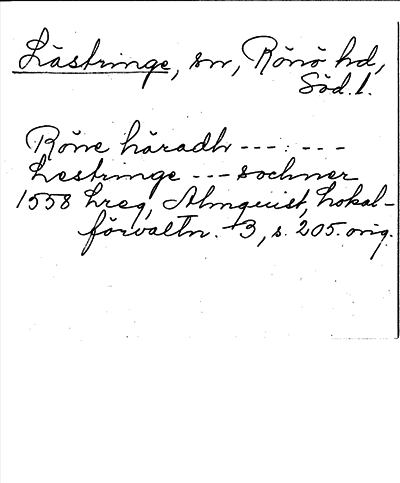 Lästringe, sn, Rönö hd,
Söd. l.
Röne häradh ---:---
Lestringe --- sochner
1558 hreg, Almquist, Lokal-
förvaltn. 3, s. 205. orig.